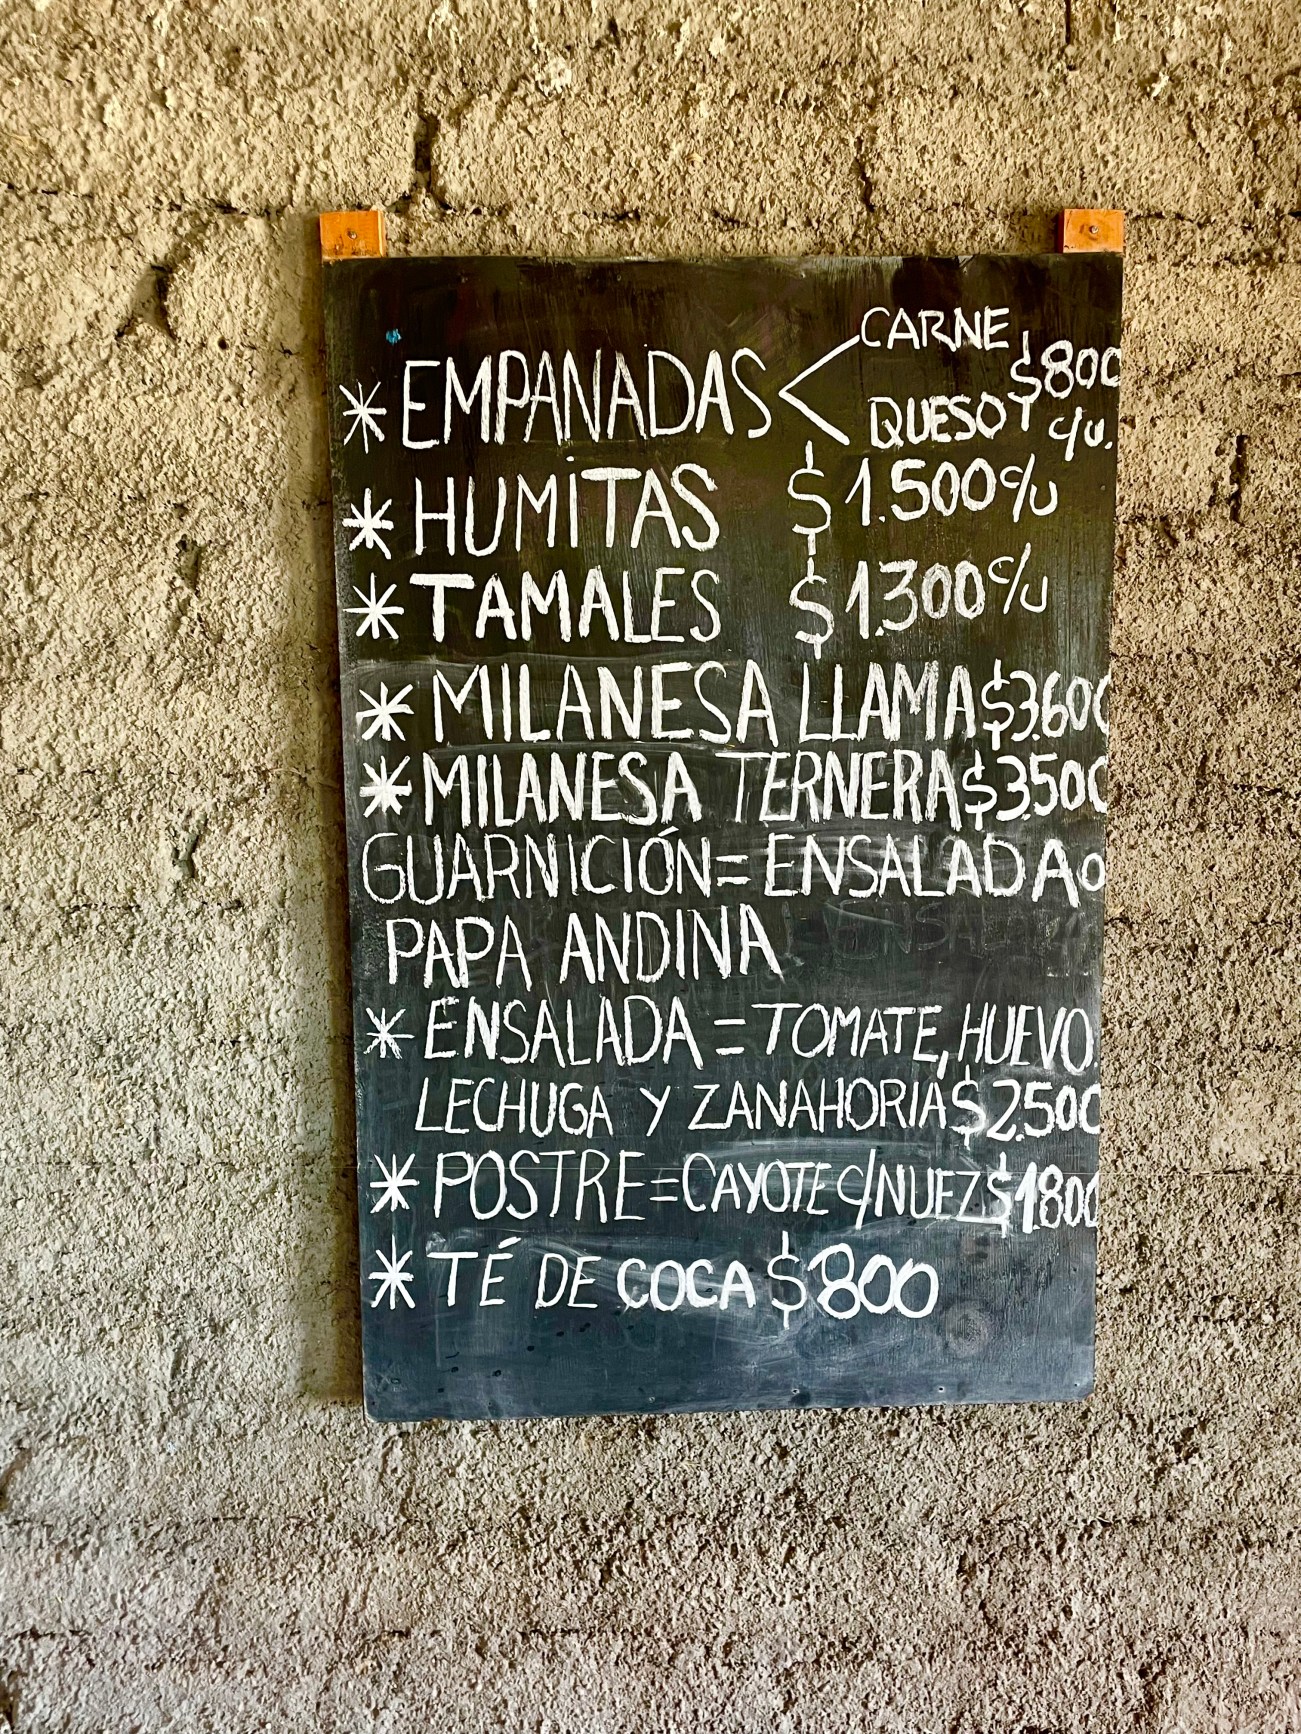 * EMPANADAS < CARNE $800
QUESO c/u.
* HUMiTAS $1.500 c/u
* TAMALES $1.300 c/u
* MILANESA LLAMA $3.600
* MILANESA TERNERA $3.500
GUARNICIÓN = ENSALADA o
PAPA ANDINA
* ENSALADA = TOMATE, HUEVO
LECHUGA Y ZANAHORIA $2.500
* POSTRE = CAYOTE c/NUEZ $1.800
* TÉ DE COCA $800